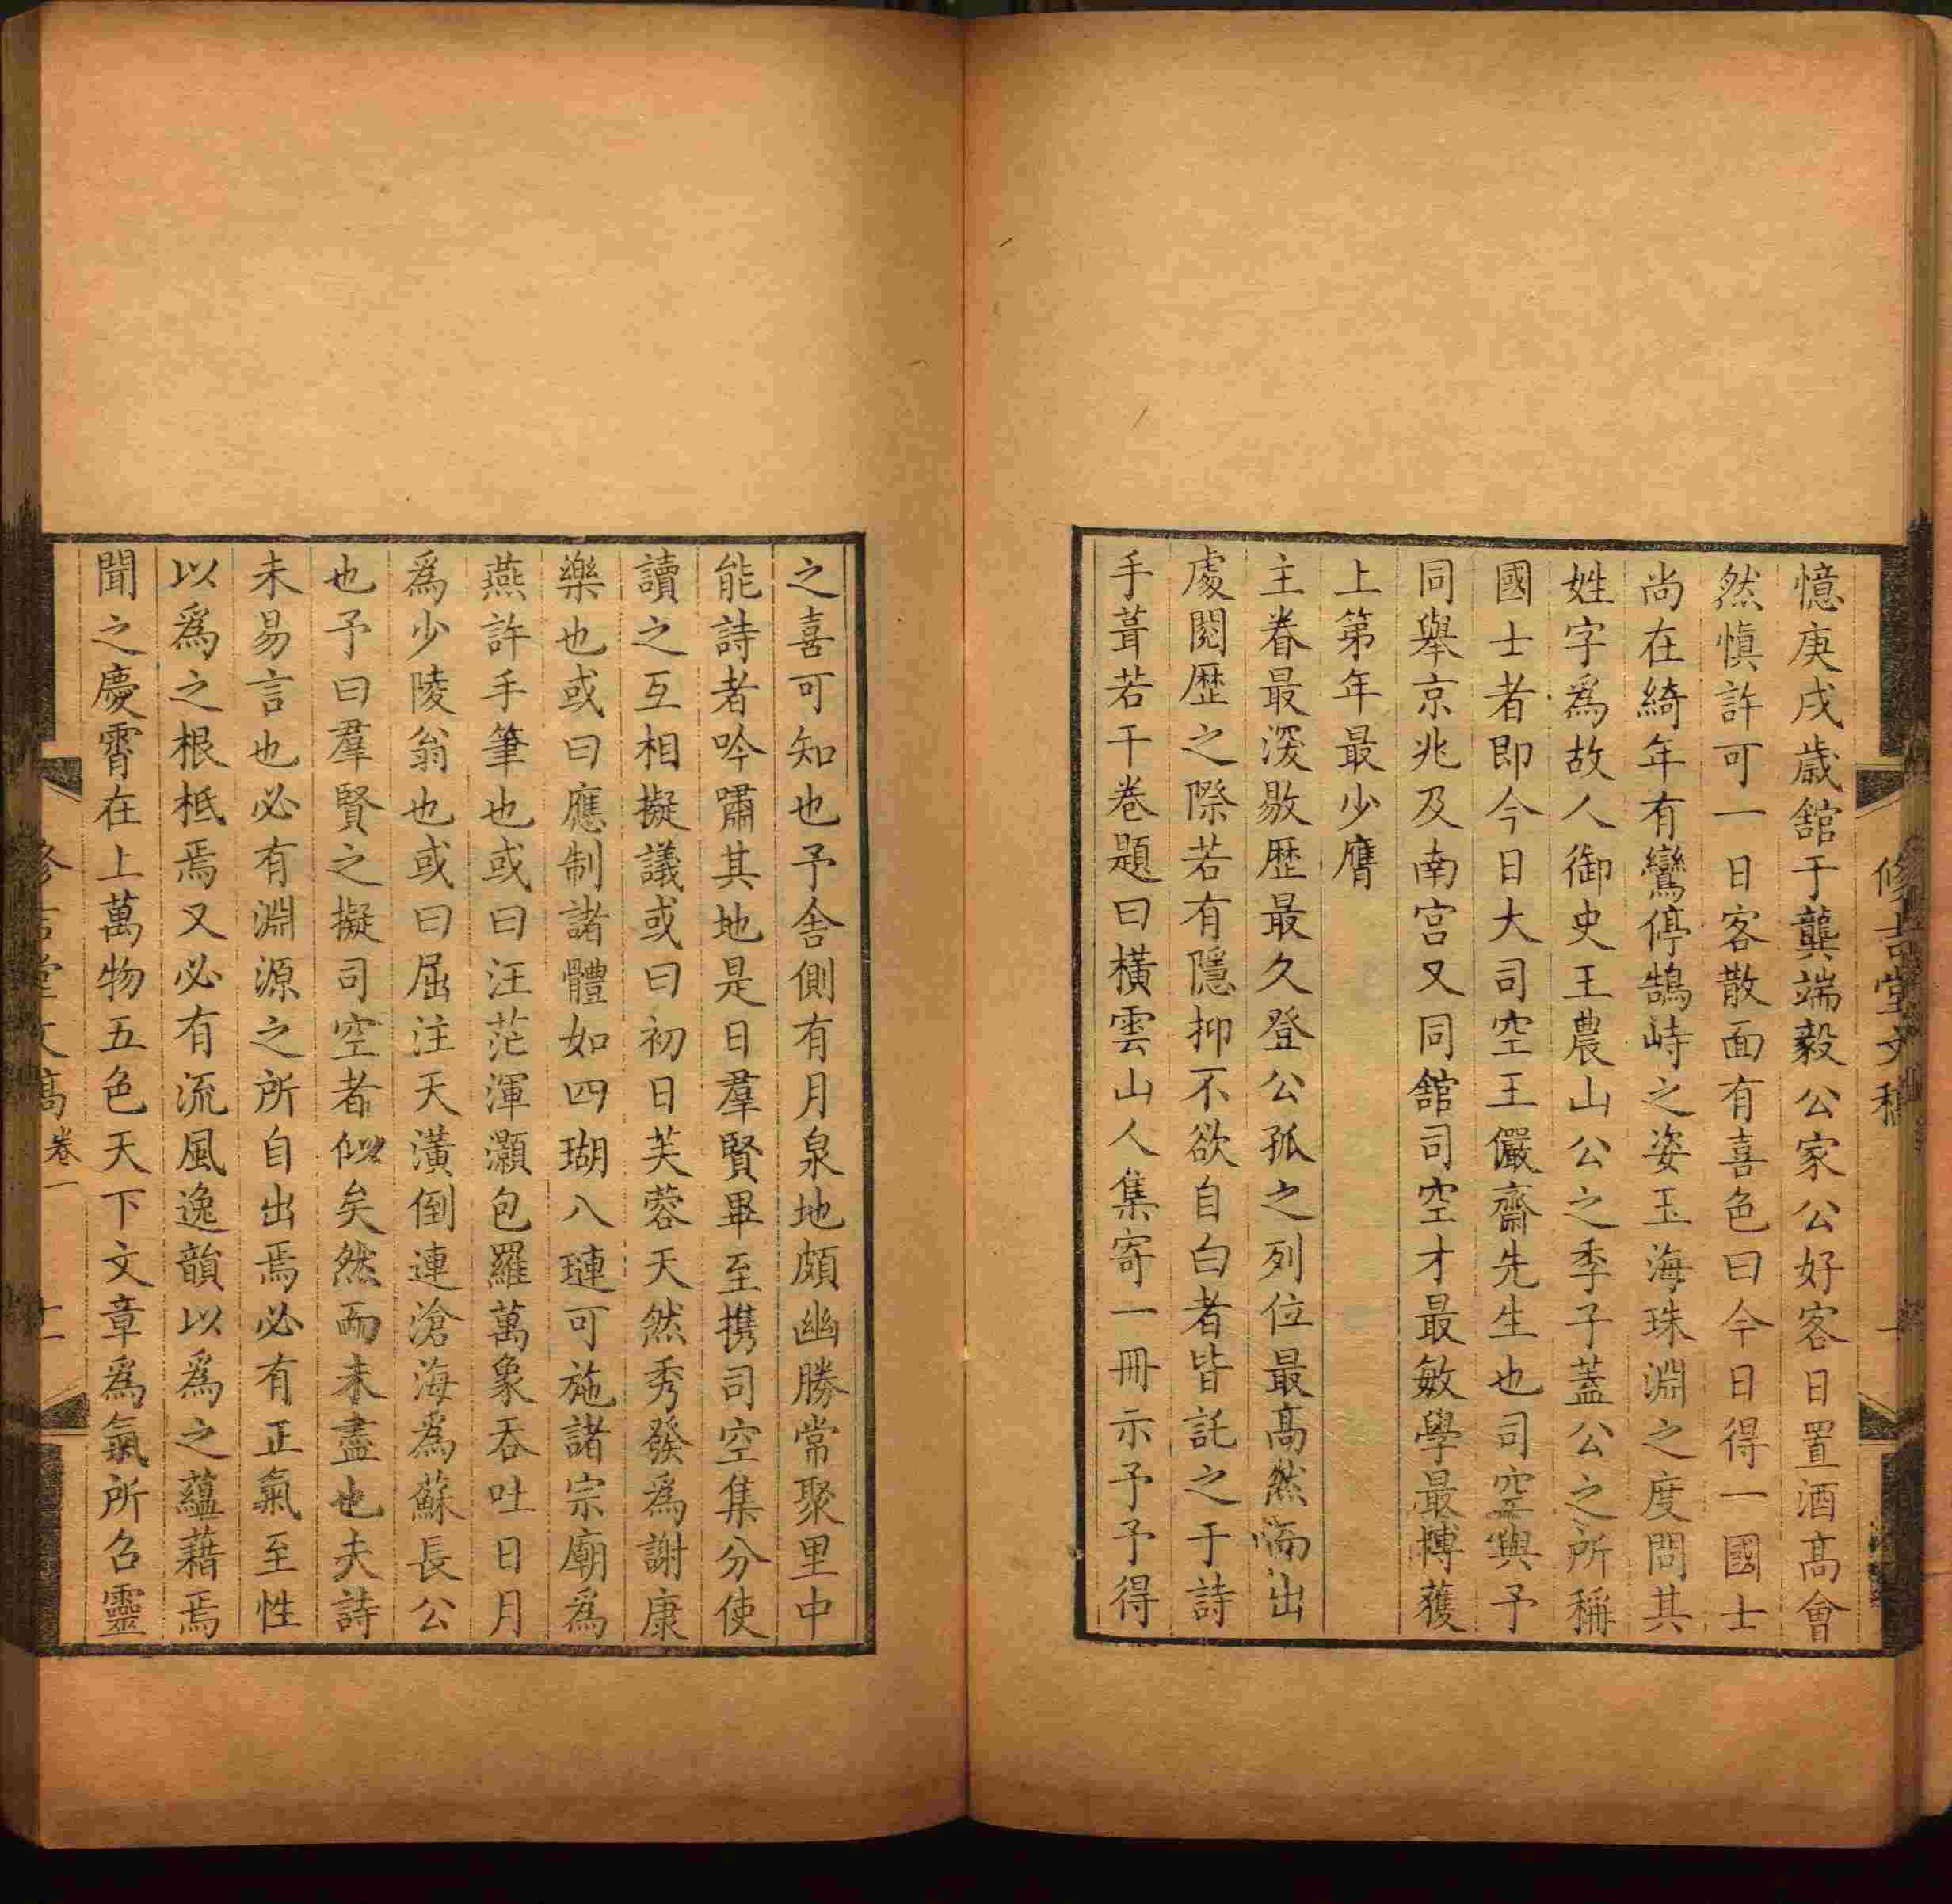 憶庚戌歲舘于龔端毅公家公好客日置酒髙會
然慎許可一日客散面有喜色曰今日得一國士
尚在綺年有鸞停鵠峙之姿玉海珠淵之度問其
姓字爲故人御史王農山公之季子蓋公之所稱
國士者即今日大司空王儼齋先生也司空與予
同舉京兆及南宫又同舘司空才最敏學最博獲
上第年最少膺
主眷最深敭歴最久登公孤之列位最髙然而出
處閱歴之際若有隱抑不欲自白者皆託之于詩
手葺若干卷題曰橫雲山人集寄一冊示予予得
之喜可知也予舍側有月泉地頗幽勝常聚里中
能詩者吟嘯其地是日羣賢畢至携司空集分使
讀之互相擬議或曰初日芙蓉天然秀發爲謝康
樂也或曰應制諸體如四瑚八璉可施諸宗廟爲
燕許手筆也或曰汪茫渾灝包羅萬象吞吐日月
爲少陵翁也或曰屈注天潢倒連滄海爲蘇長公
也予曰羣賢之擬司空者似矣然而未盡也夫詩
未易言也必有淵源之所自出焉必有正氣至性
以爲之根柢焉又必有流風逸韻以爲之蘊藉焉
聞之慶霄在上萬物五色天下文章爲氣所召靈
卷一